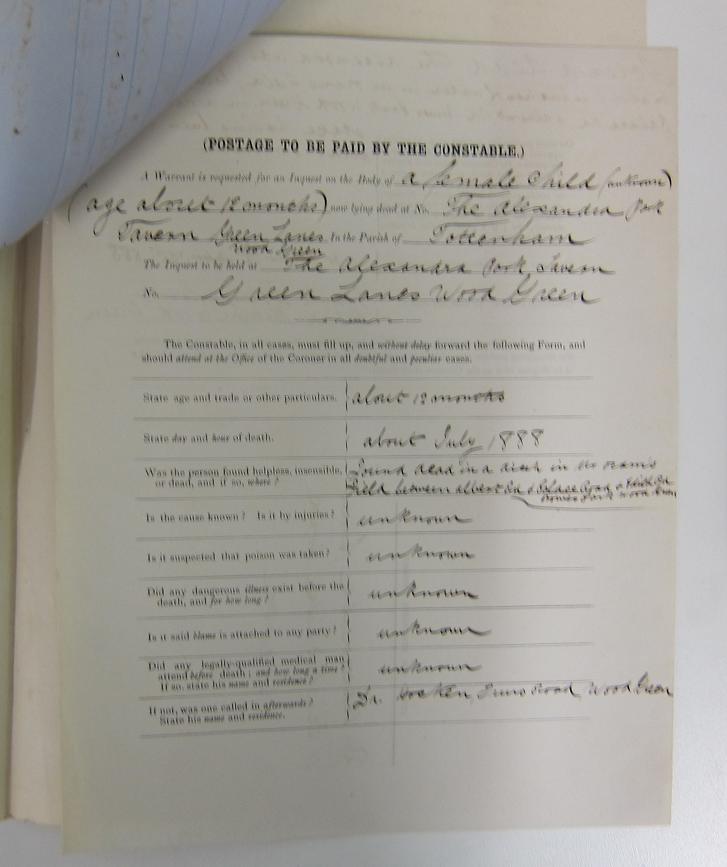 (POSTAGE TO BE PAID BY THE CONSTABLE.)
A Warrant is requested for an Inquest on the Body of a female Child (unknown)
(age about 12 months) now lying dead at No. The Alexandra Park
Tavern Green Lanes In the Parish of Tottenham
Wood Green
The Inquest to be held at The Alexandra Park Tavern
No. Green Lanes Wood Green
The Constable, in all cases, must fill up, and without delay forward the following Form, and
should attend at the Office of the Coroner in all doubtful and peculiar cases.
State age and trade or other particulars. about 12 months
State day and hour of death. about July 1888
Was the person found helpless, insensible, Found dead in a ditch in
or dead, and if so, where? Field between Albert Rd &
Park Wood Green
Is the cause known? Is it by injuries? unknown
Is it suspected that poison was taken? unknown
Did any dangerous illness exist before the
death, and for how long? unknown
Is it said blame is attached to any party? unknown
Did any legally-qualified medical man
attend before death; and how long a time? unknown
If so, state his name and residence?
If not, was one called in afterwards? Dr. Road, Wood Green
State his name and residence.